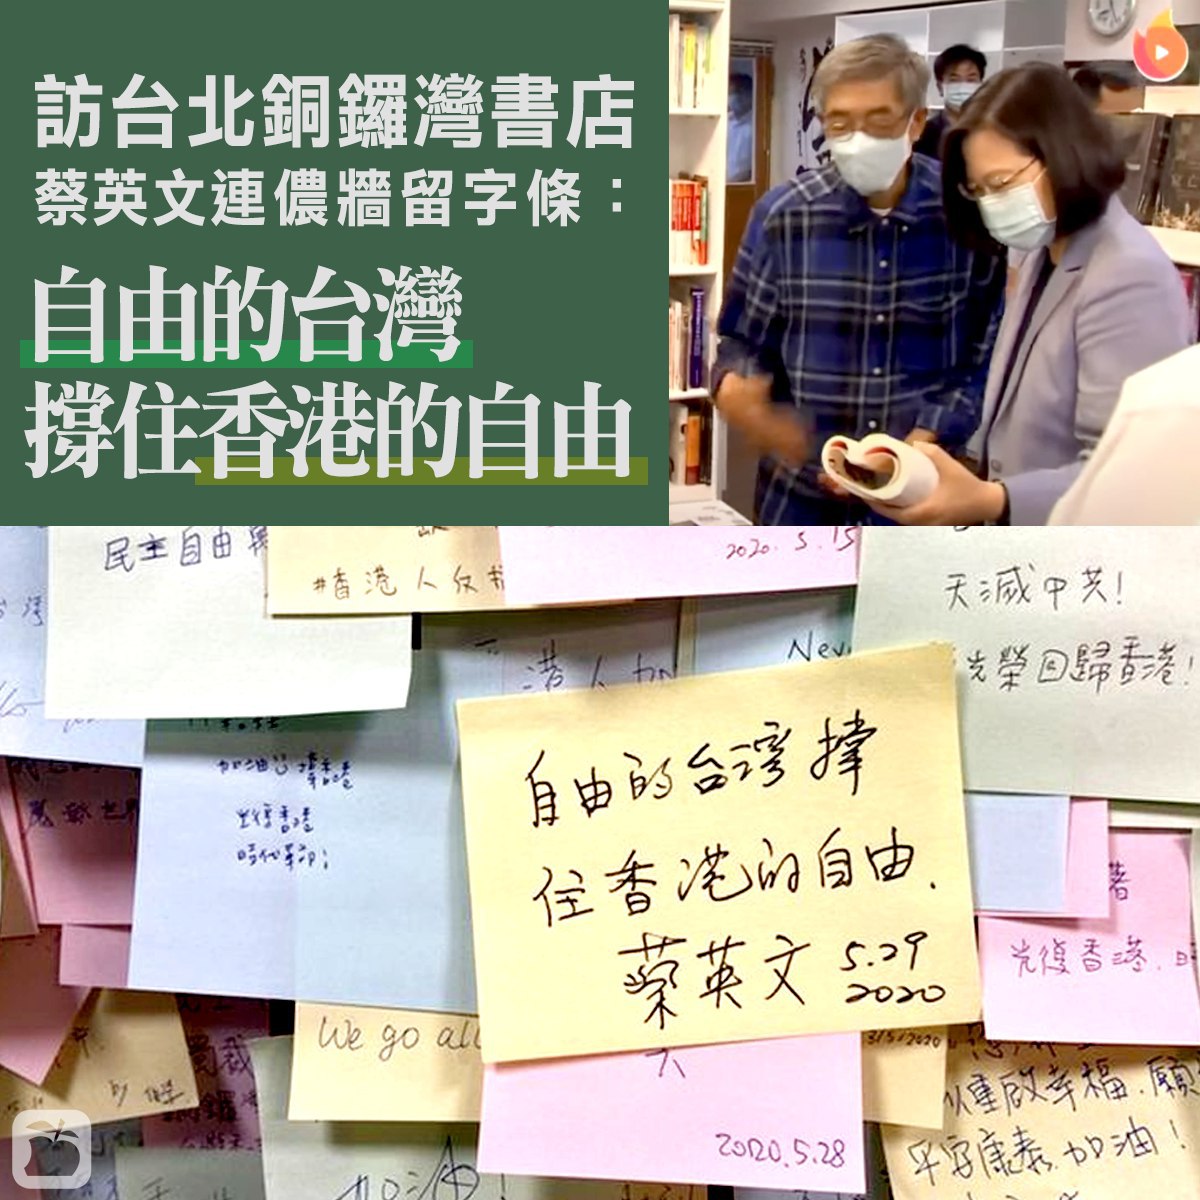 訪台北銅鑼灣書店
蔡英文連儂牆留字條：
自由的台灣
撐住香港的自由
民主自由
#香港人反抗
2020.5.15
天滅中共！
光榮回歸香港！
港人加
Nev
加油！撐香港
光復香港
時代革命！
自由的台灣撐
住香港的自由.
蔡英文 5.29
2020
光復香港.
We go all
31/5/2020
以重啟幸福.願
平安康泰.加油！
2020.5.28
加油！